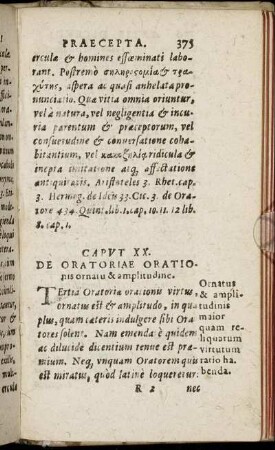 PRAECEPTA. 375
ercula & homines effœminati labo-
rant. Postremò σκληροστομία & τρα-
χύτης, aspera ac quasi anhelata pro-
nunciatio. Quæ vitia omnia oriuntur,
vel à natura, vel negligentia & incu-
ria parentum & præceptorum, vel
consuetudine & conversatione coha-
bitantium, vel κακοζηλίᾳ, ridicula & in-
epta imitatione atq; affectatione
antiquitatis. Aristoteles 3. Rhet. cap.
3. Hermog. de Ideis 33. Cic. 3. de Ora-
tore 434. Quint. lib. 1. cap. 10. 11. 12 lib.
8. cap. 1.
CAPVT XX.
DE ORATORIAE ORATIO-
nis ornatu & amplitudine.
Tertia Oratoria orationu virtus,
ornatus est & amplitudo, in qua
plus, quam cæteris indulgere sibi Ora-
tores solent. Nam emendatè quidem
ac dilucidè dicentium tenue est præ-
mium. Neq; vnquam Oratorem quis
est miratus, quòd latinè loqueretur.
Ornatus
& ampli-
tudinis
maior
quam re-
liquarum
virtutum
ratio ha-
benda.
R 2 nec